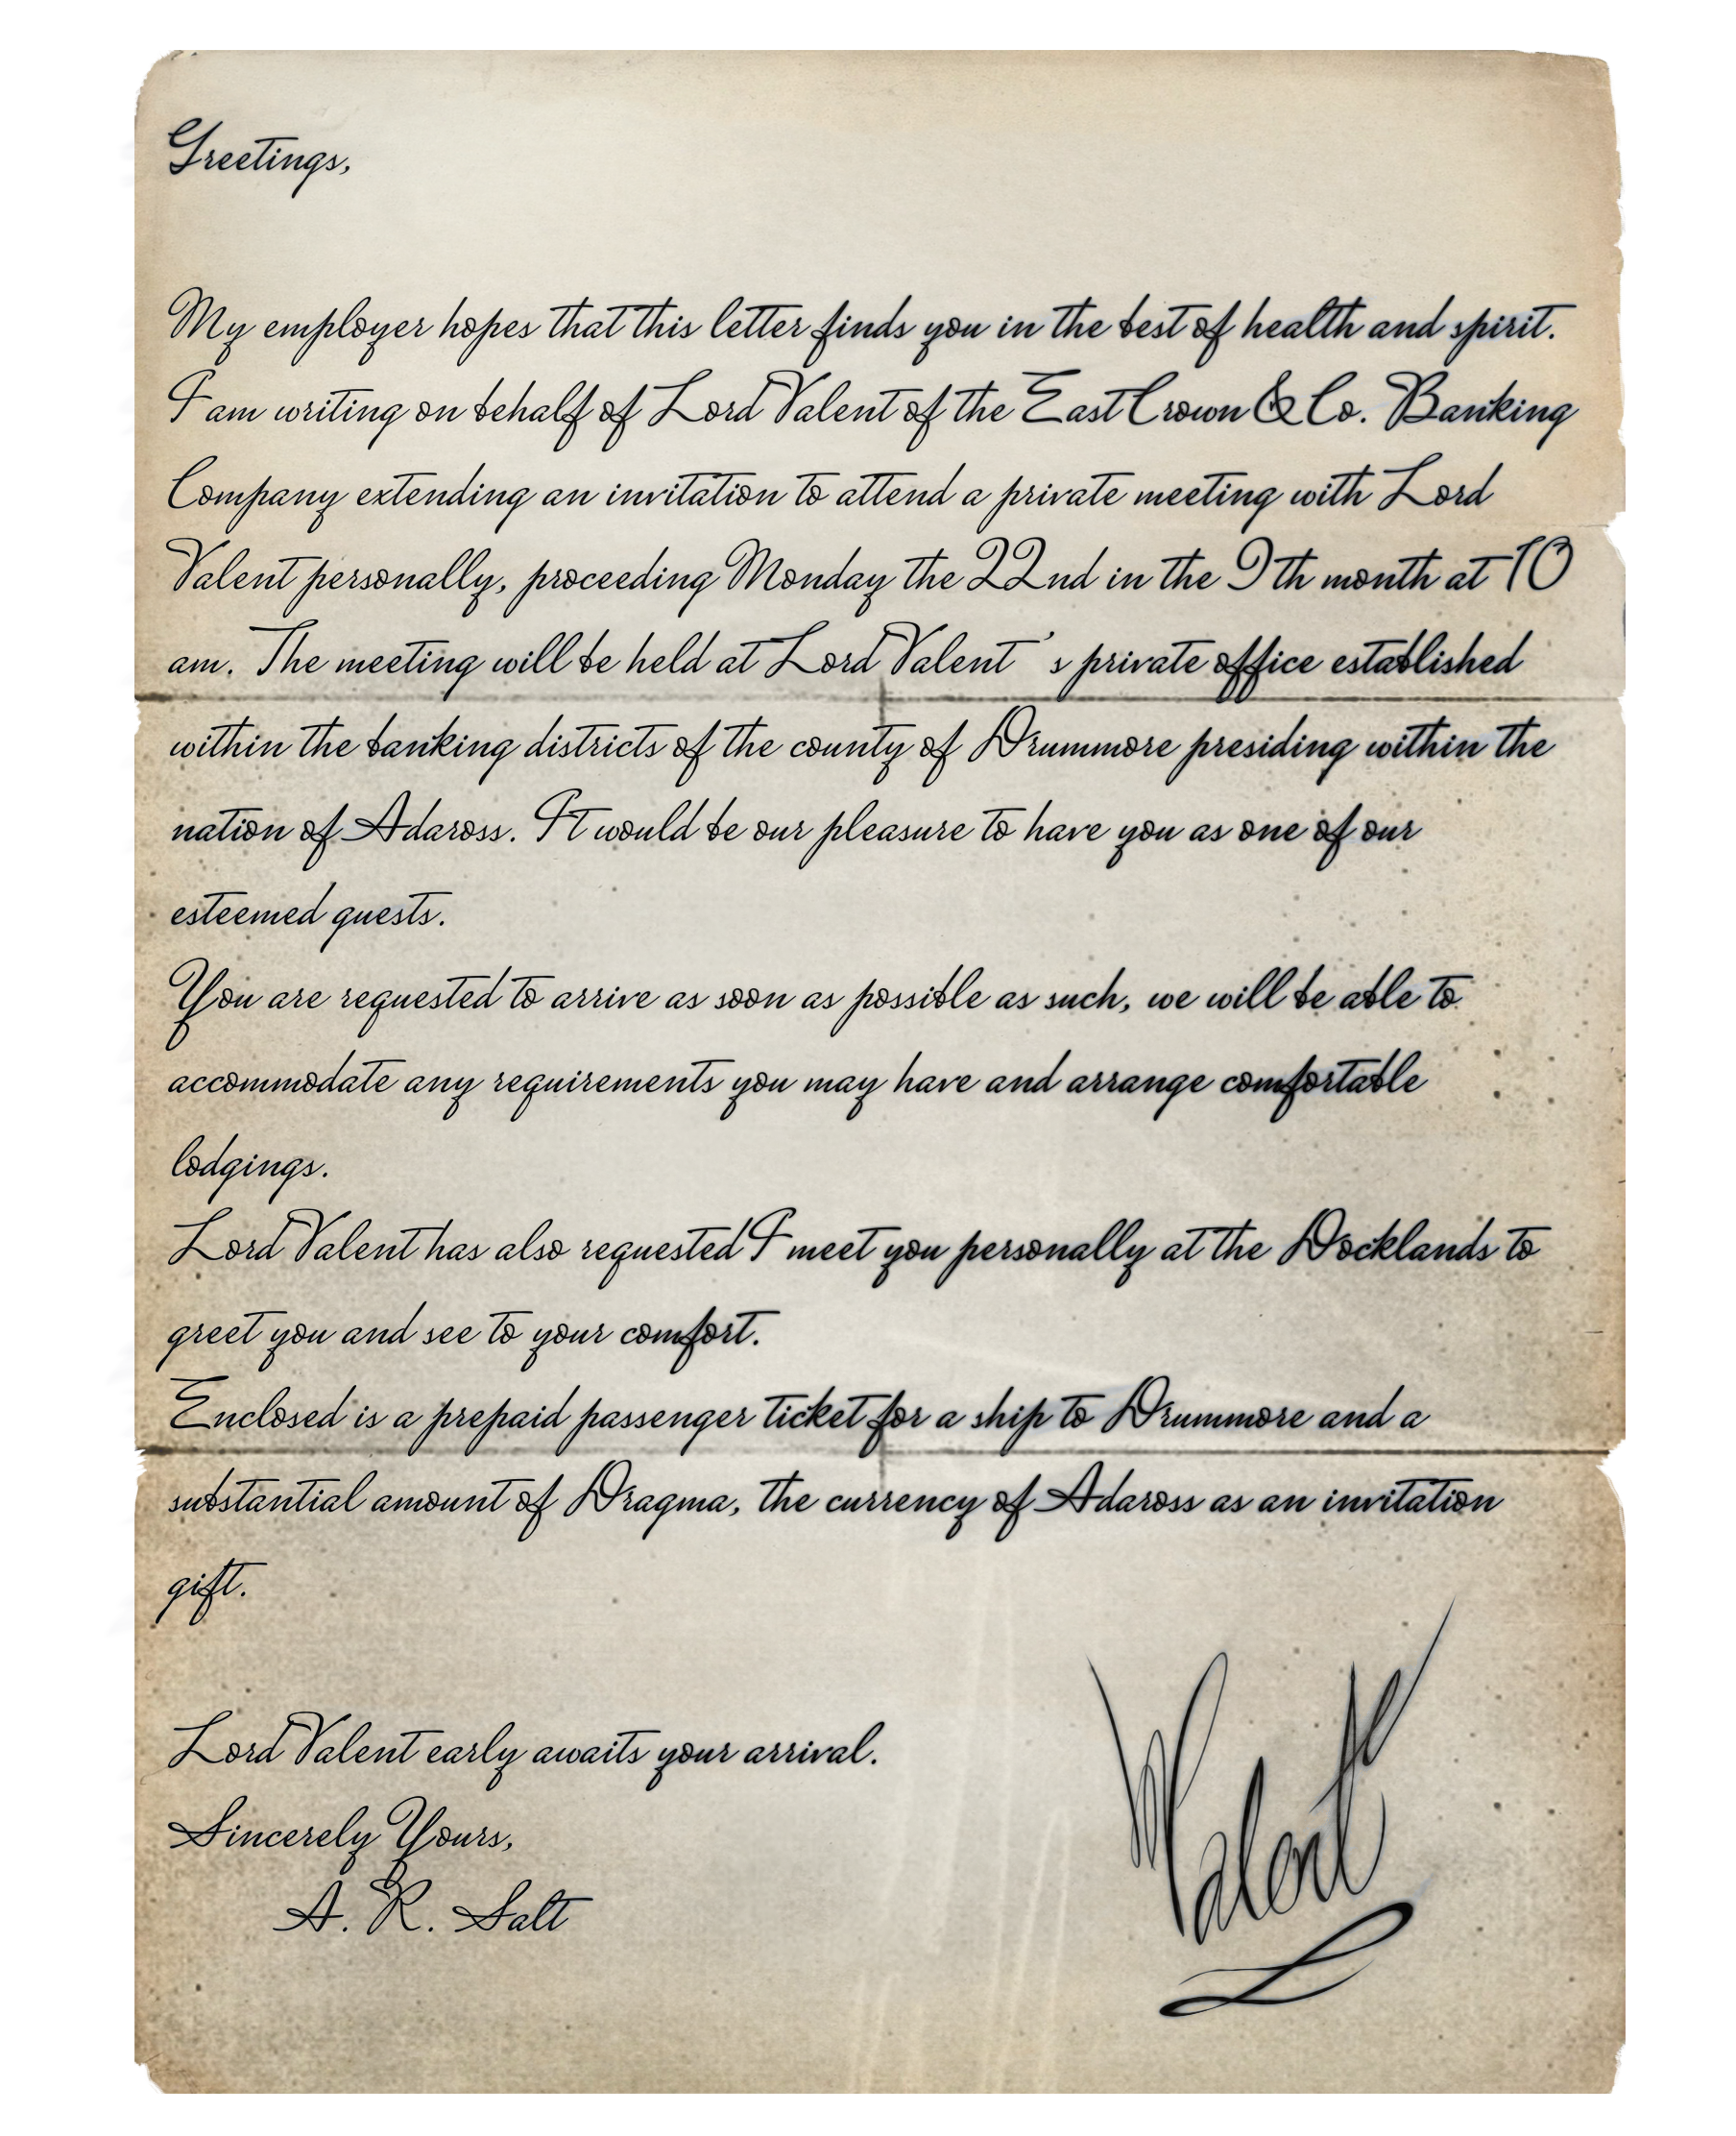 Greetings,
My employer hopes that this letter finds you in the best of health and spirit.
I am writing on behalf of Lord Valent of the East Crown & Co. Banking
Company extending an invitation to attend a private meeting with Lord
Valent personally, proceeding Monday the 22nd in the 9th month at 10
am. The meeting will be held at Lord Valent 's private office established
within the banking districts of the county of Drummore presiding within the
nation of Adaross. It would be our pleasure to have you as one of our
esteemed guests.
You are requested to arrive as soon as possible as such, we will be able to
accommodate any requirements you may have and arrange comfortable
lodgings.
Lord Valent has also requested I meet you personally at the Docklands to
greet you and see to your comfort.
Enclosed is a prepaid passenger ticket for a ship to Drummore and a
substantial amount of Dragma, the currency of Adaross as an invitation
gift.
Lord Valent early awaits your arrival.
Sincerely Yours,
A. R. Salt
Valent